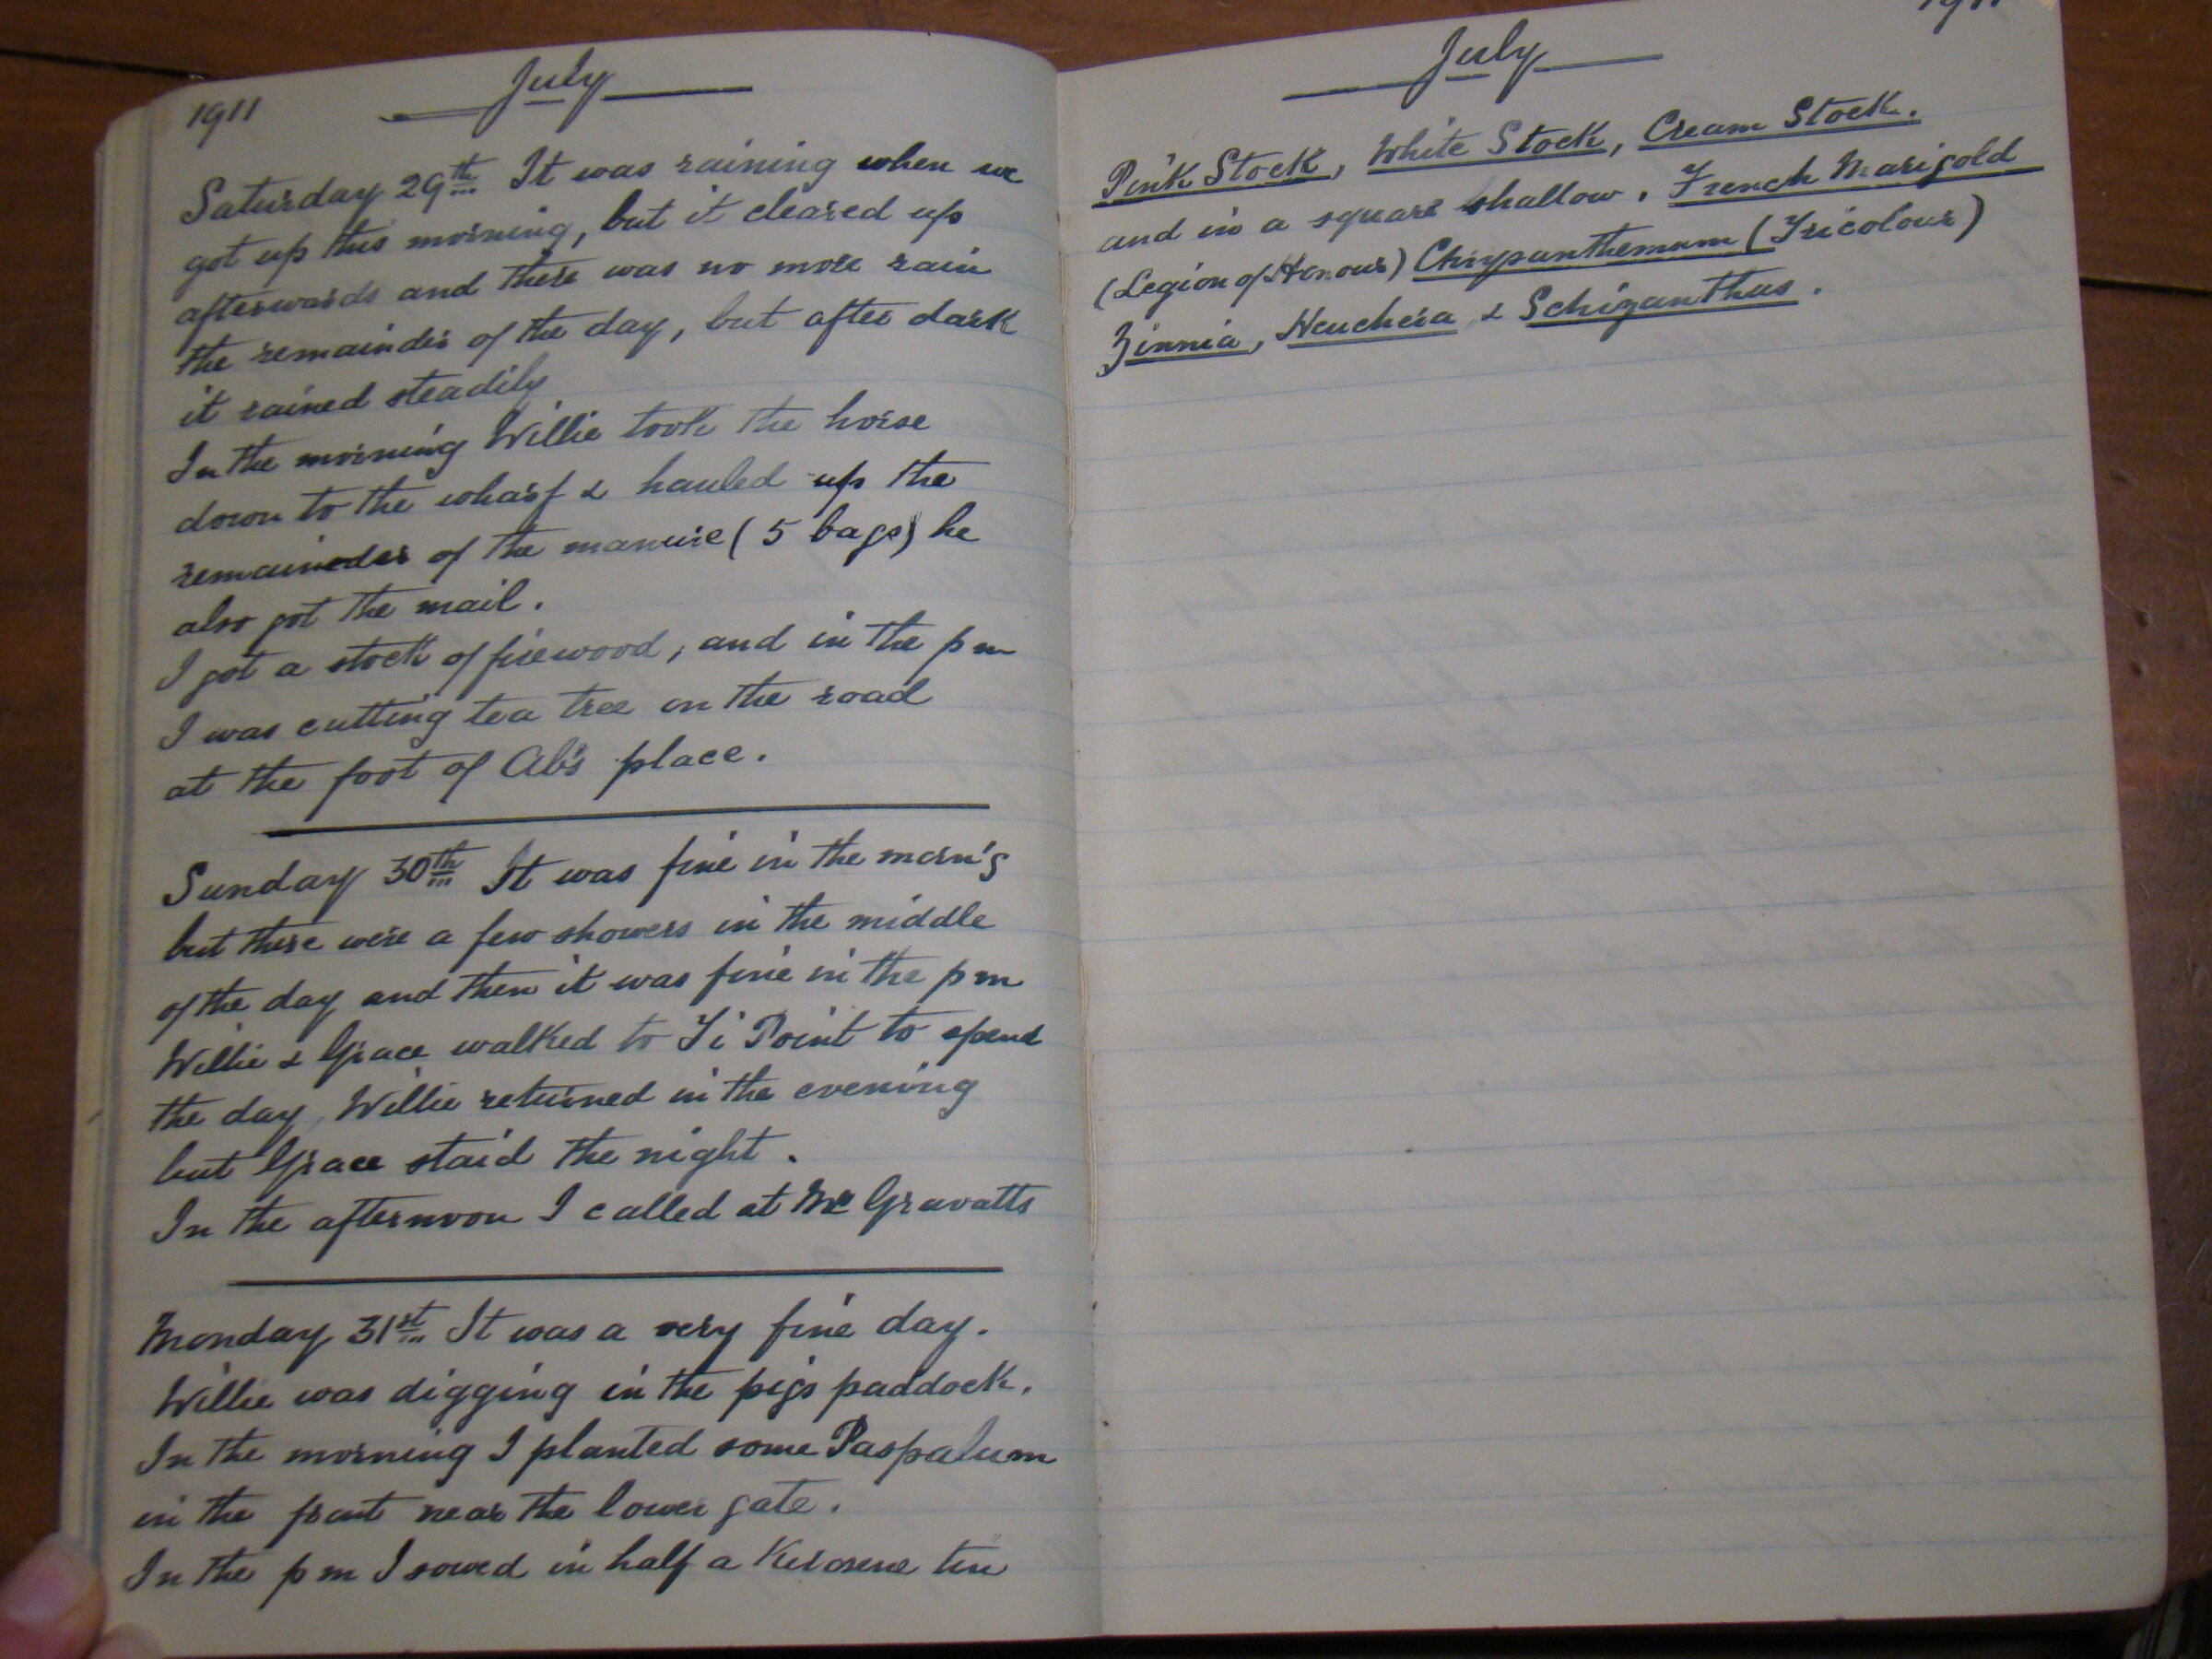 1911
July
Saturday 29th It was raining when we
got up this morning, but it cleared up
afterwards and there was no more rain
the remainder of the day, but after dark
it rained steadily
In the morning Willie took the horse
down to the wharf & hauled up the
remainder of the manure (5 bags) he
also got the mail.
I got a stock of firewood, and in the pm
I was cutting tea tree on the road
at the foot of Ab's place.
Sunday 30th It was fine in the morn'g
but there were a few showers in the middle
of the day and then it was fine in the pm
Willie & Grace walked to Ti Point to spend
the day, Willie returned in the evening
but Grace staid the night.
In the afternoon I called at Mc Gravatts
Monday 31st It was a very fine day.
Willie was digging in the pigs paddock.
In the morning I planted some Paspalum
in the front near the lower gate.
In the pm I sowed in half a Kerosene tin
1911
July
Pink Stock, White Stock, Cream Stock.
and in a square shallow. French Marigold
(Legion of Honour) Chrysanthemum (Tricolour)
Zinnia, Heuchera & Schizanthus.